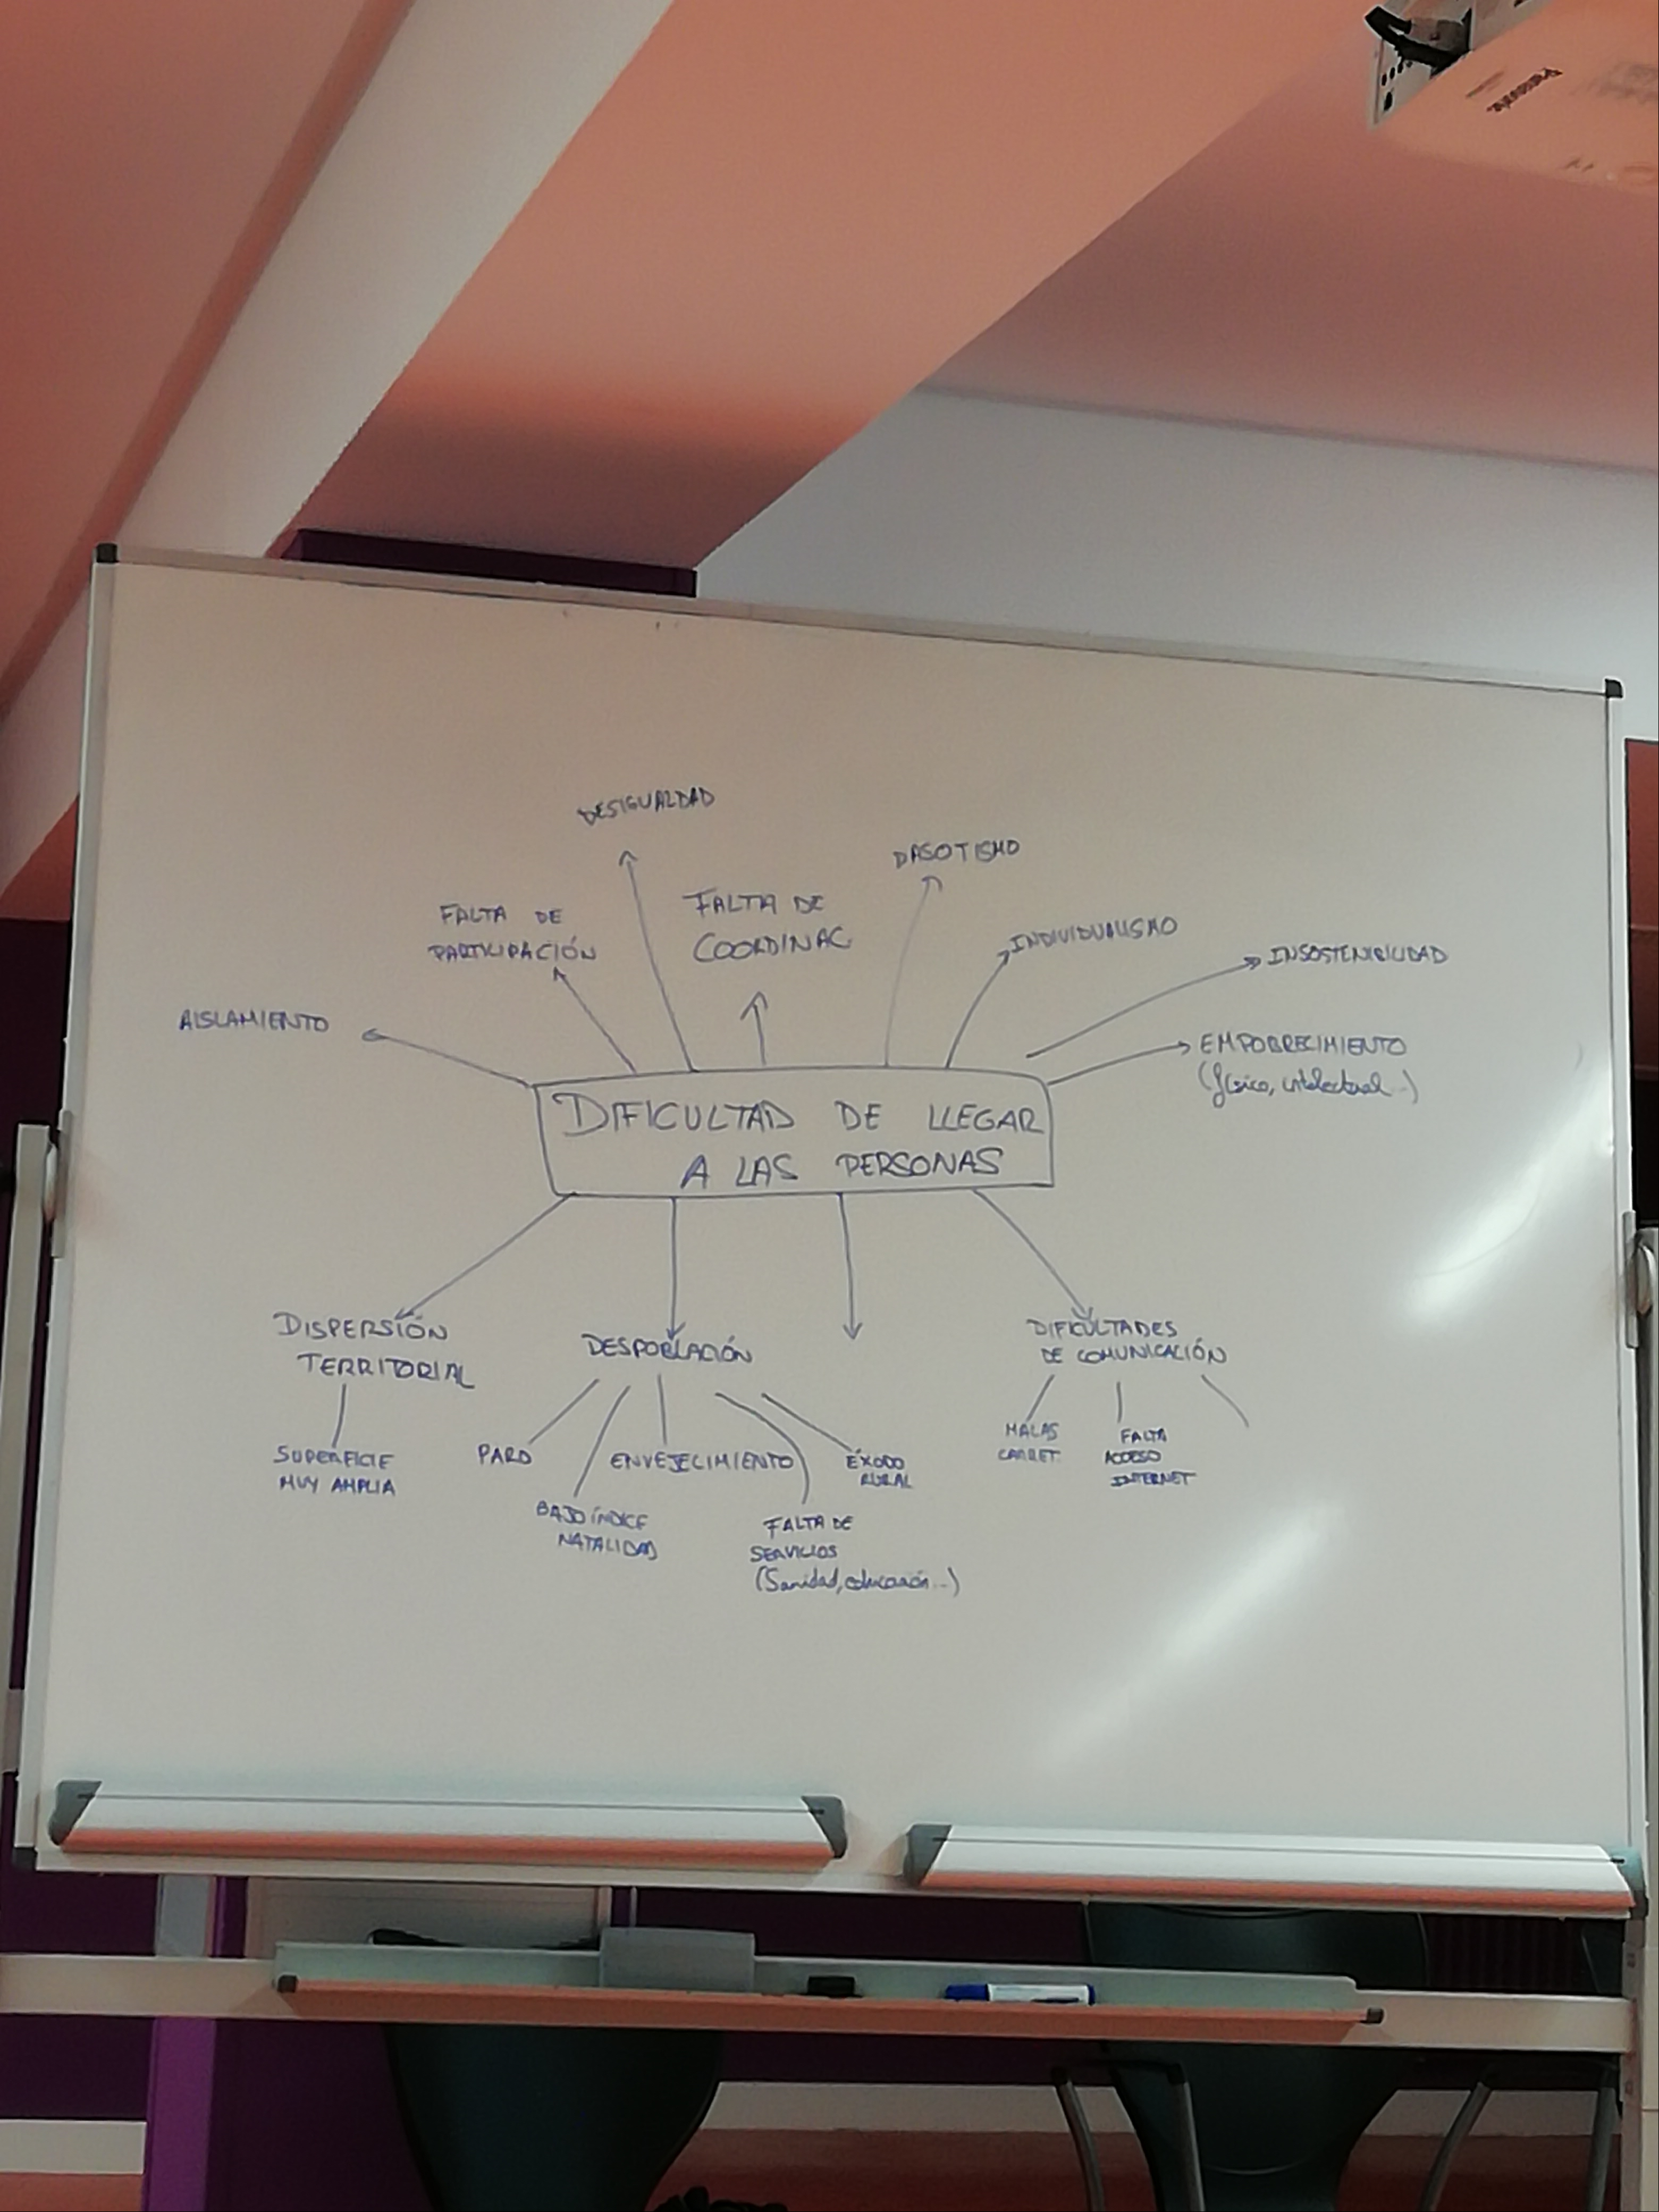 Panasonic
DESIGUALDAD
DASOTISMO
FALTA DE
PARTICIPACIÓN
FALTA DE
COORDINAC
INDIVIDUALISMO
INSOSTENIBILIDAD
AISLAMIENTO
EMPOBRECIMIENTO
(físico, intelectual...)
DIFICULTAD DE LLEGAR
A LAS PERSONAS
DISPERSIÓN
TERRITORIAL
SUPERFICIE
MUY AMPLIA
DESPOBLACIÓN
PARO
BAJO ÍNDICE
NATALIDAD
ENVEJECIMIENTO
FALTA DE
SERVICIOS
(Sanidad, educación...)
ÉXODO
RURAL
DIFICULTADES
DE COMUNICACIÓN
MALAS
CARRET.
FALTA
ACCESO
INTERNET